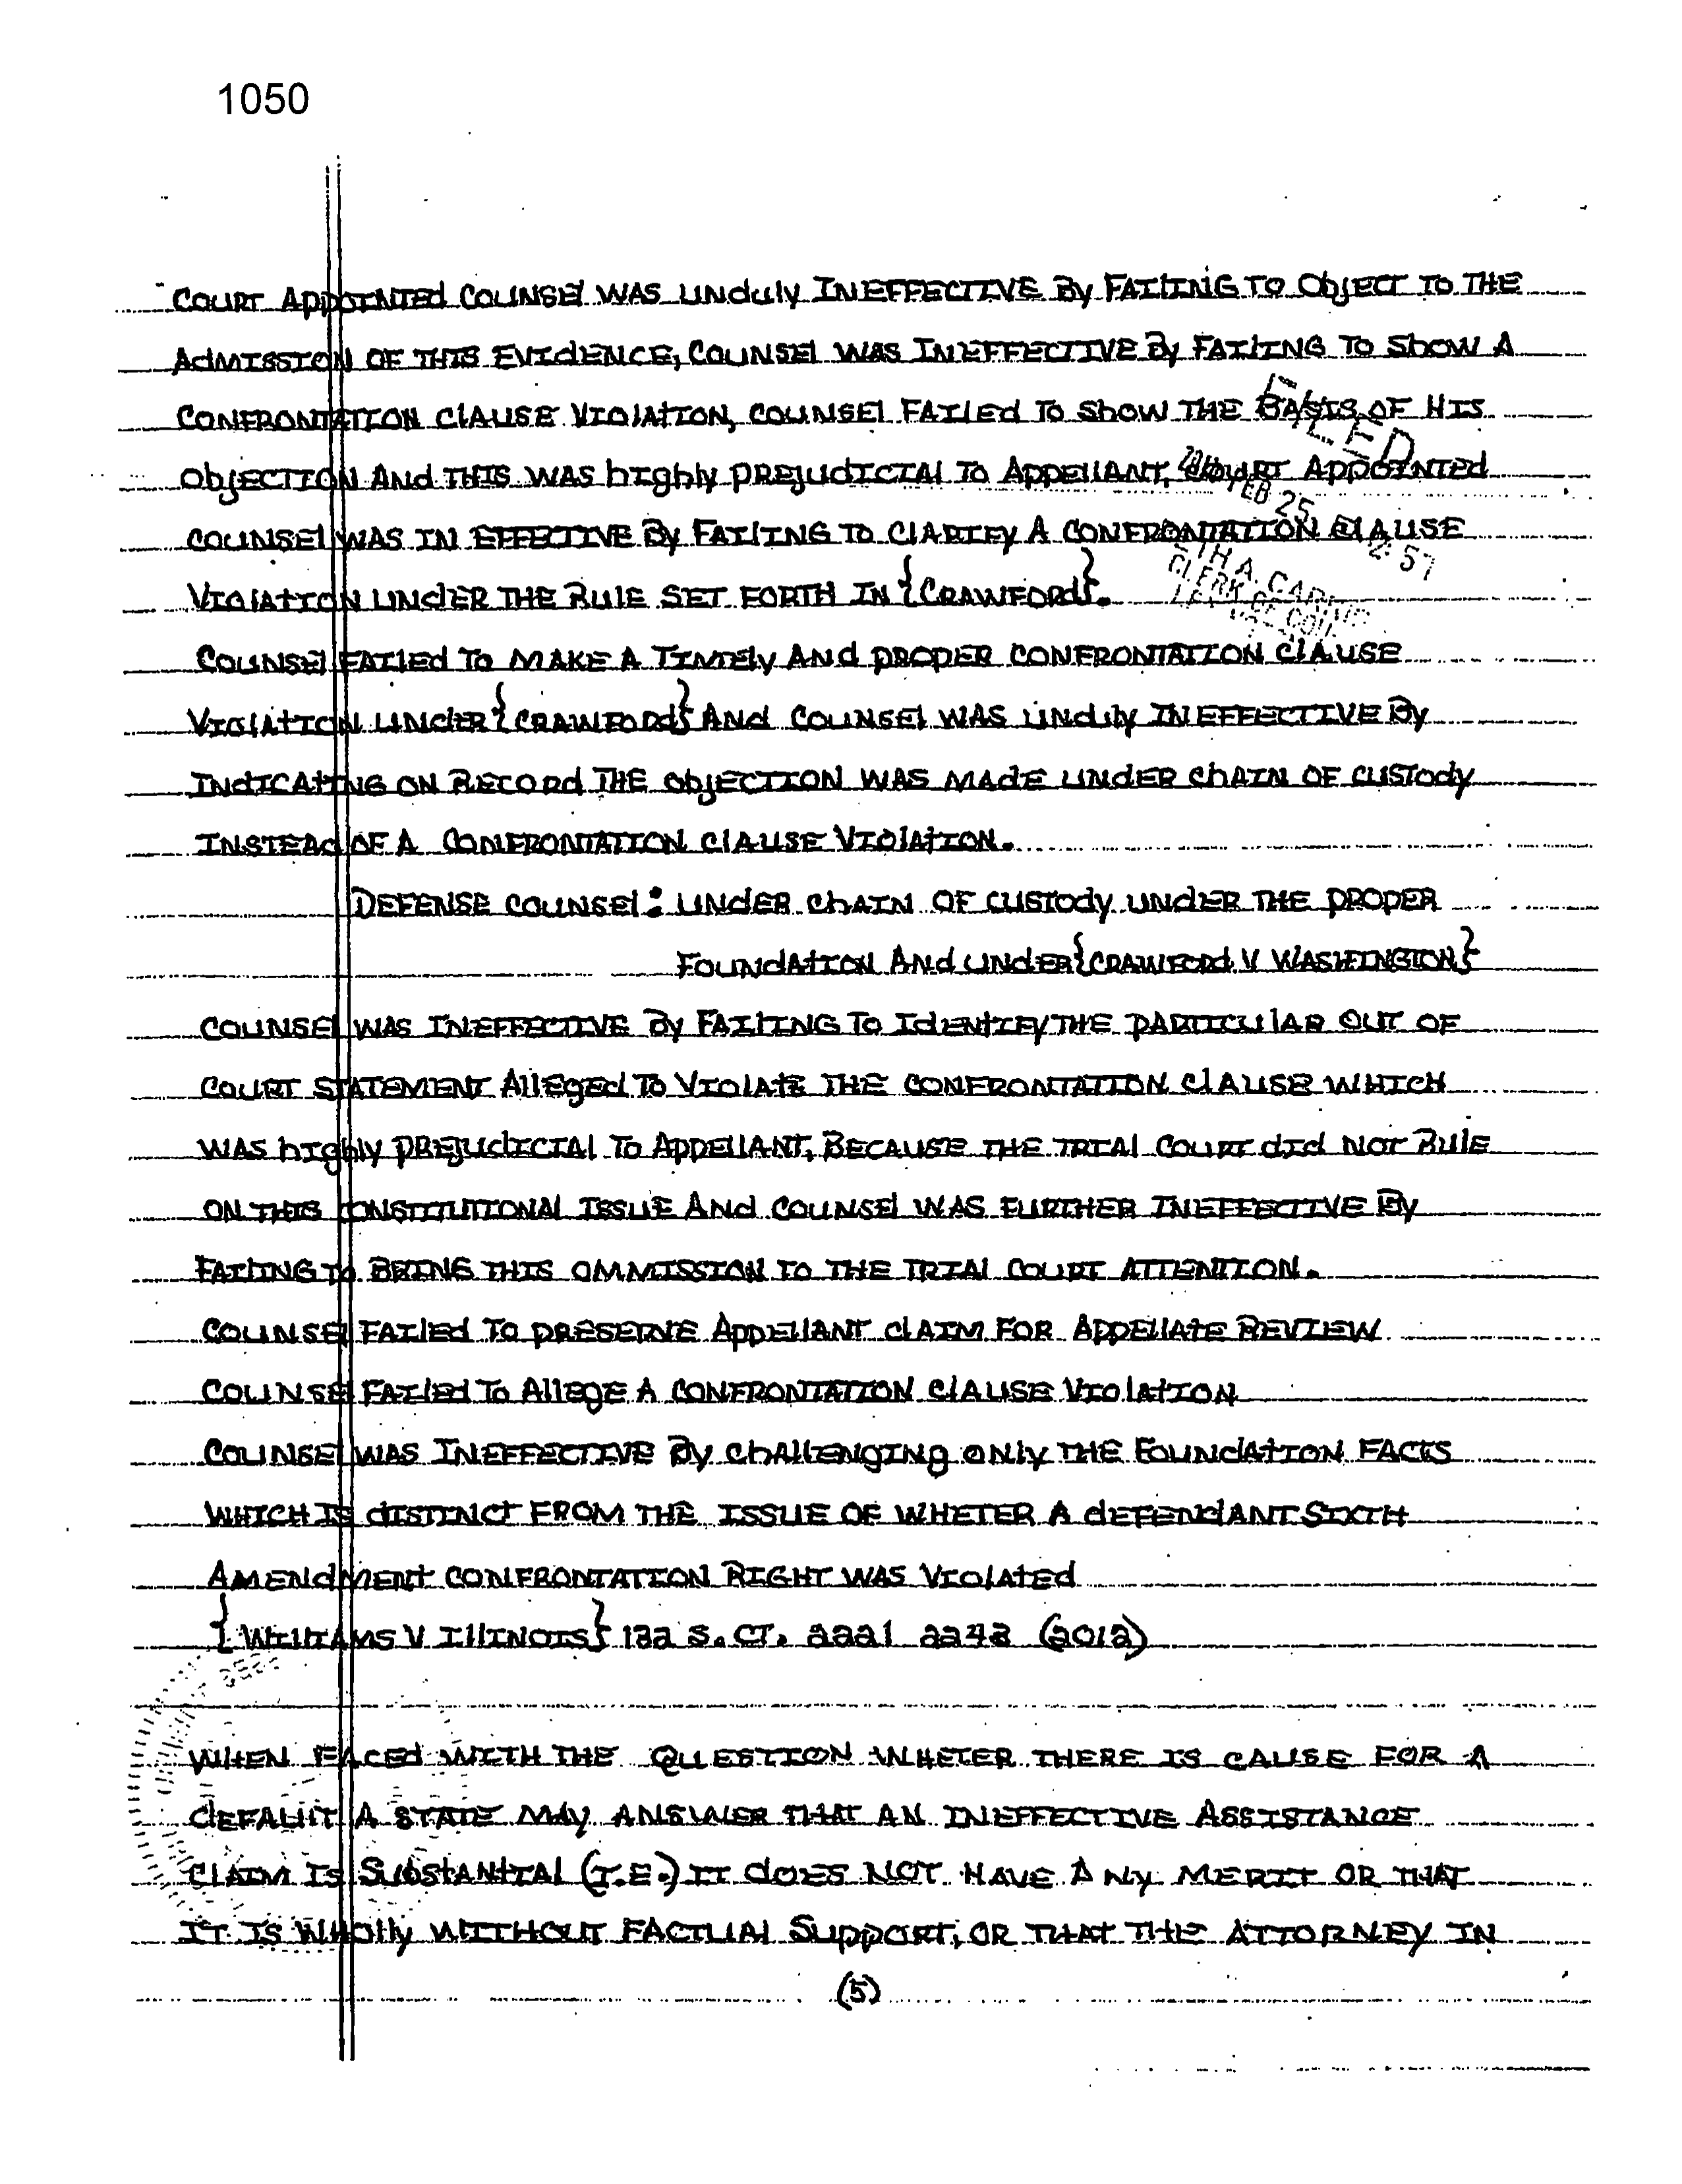 1050
COURT APPOINTED COUNSEL WAS UNDULY INEFFECTIVE BY FAILING TO OBJECT TO THE
ADMISSION OF THIS EVIDENCE, COUNSEL WAS INEFFECTIVE BY FAILING TO SHOW A
CONFRONTATION CLAUSE VIOLATION, COUNSEL FAILED TO SHOW THE BASIS OF HIS
OBJECTION AND THIS WAS HIGHLY PREJUDICIAL TO APPELLANT, COURT APPOINTED
COUNSEL WAS IN EFFECTIVE BY FAILING TO CLARIFY A CONFRONTATION CLAUSE
VIOLATION UNDER THE RULE SET FORTH IN {CRAWFORD}.
FILED
FEB 25
2:57
CLERK OF
COUNSEL FAILED TO MAKE A TIMELY AND PROPER CONFRONTATION CLAUSE
VIOLATION UNDER {CRAWFORD} AND COUNSEL WAS UNDULY INEFFECTIVE BY
INDICATING ON RECORD THE OBJECTION WAS MADE UNDER CHAIN OF CUSTODY
INSTEAD OF A CONFRONTATION CLAUSE VIOLATION.
DEFENSE COUNSEL: UNDER CHAIN OF CUSTODY UNDER THE PROPER
FOUNDATION AND UNDER {CRAWFORD V WASHINGTON}
COUNSEL WAS INEFFECTIVE BY FAILING TO IDENTIFY THE PARTICULAR OUT OF
COURT STATEMENT ALLEGED TO VIOLATE THE CONFRONTATION CLAUSE WHICH
WAS HIGHLY PREJUDICIAL TO APPELLANT, BECAUSE THE TRIAL COURT DID NOT RULE
ON THIS CONSTITUTIONAL ISSUE AND COUNSEL WAS FURTHER INEFFECTIVE BY
FAILING TO BRING THIS OMMISSION TO THE TRIAL COURT ATTENTION.
COUNSEL FAILED TO PRESERVE APPELLANT CLAIM FOR APPELLATE REVIEW
COUNSEL FAILED TO ALLEGE A CONFRONTATION CLAUSE VIOLATION
COUNSEL WAS INEFFECTIVE BY CHALLENGING ONLY THE FOUNDATION FACTS
WHICH IS DISTINCT FROM THE ISSUE OF WHETER A DEFENDANT SIXTH
AMENDMENT CONFRONTATION RIGHT WAS VIOLATED
{WILLIAMS V ILLINOIS} 132 S. CT. 2221 2243 (2012)
WHEN FACED WITH THE QUESTION WHETER THERE IS CAUSE FOR A
DEFAULT A STATE MAY ANSWER THAT AN INEFFECTIVE ASSISTANCE
CLAIM IS SUBSTANTIAL (I.E.) IT DOES NOT HAVE ANY MERIT OR THAT
IT IS WHOLLY WITHOUT FACTUAL SUPPORT, OR THAT THE ATTORNEY IN
(5)